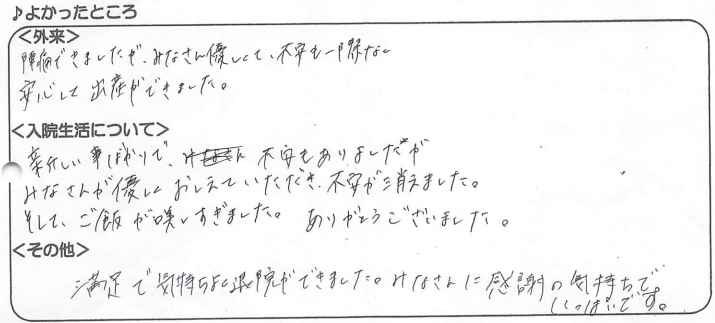 ♪よかったところ
<外来>
陣痛できましたが、みなさん優しくて、不安も一際なく
安心して出産ができました。
<入院生活について>
新しい事ばかりで、不安もありましたが
みなさんが優しくおしえていただき、不安が消えました。
そして、ご飯が美味しすぎました。ありがとうございました。
<その他>
満足で気持ちよく退院ができました。みなさんに感謝の気持ちで
いっぱいです。